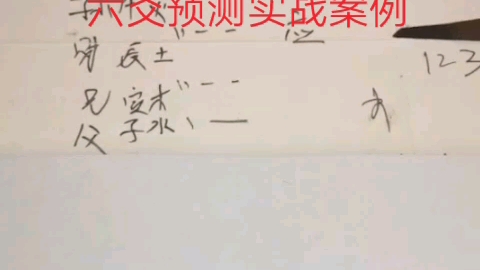 六爻预测实战案例
应
财 辰土
123
兄 寅木
父 子水